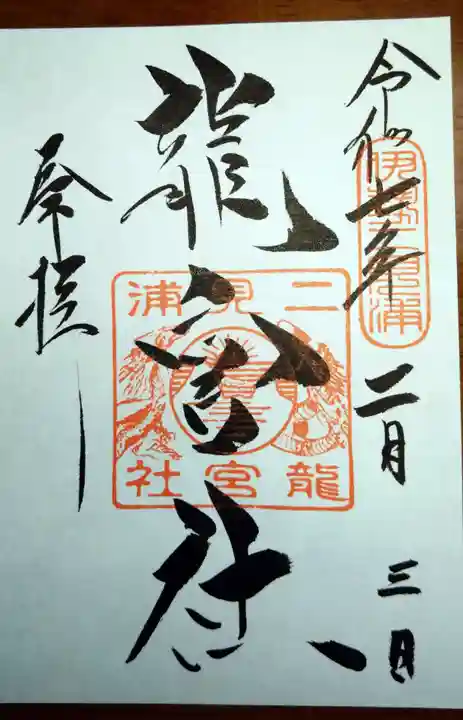 令和七年二月三日
伊勢二見浦
龍宮社
二見浦
龍宮社
奉拝